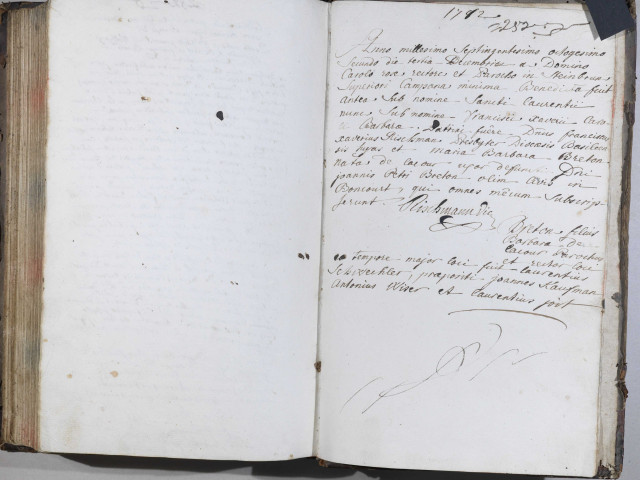 1782
252
Anno millesimo Septingentesimo octogesimo
Secundo die tertia Xbumbries a Domino
Carolo roce rectore et Parocho in Steinbrun
Superiori Campana minima Benedicta fuit
antea Sub nomine Sancti Laurentii
nunc Sub nomine Francisci xaverii
Barbara. Patrini fuere Dnus franciscus
xaverius Fleischman Presbyter Diœcesis Basileen
sis et maria Barbara Breton
nata de lacour uxor defuncti Dni
joannis Petri Breton olim civis in
Boncourt, qui omnes mecum Subscrip
serunt. Fleischmann
Breton filius
Barbara De
lacour Parochus
et rector loci
eo tempore major loci fuit laurentius
Schwechler, præpositi joannes Kaufman
Antonius Wiser et laurentius